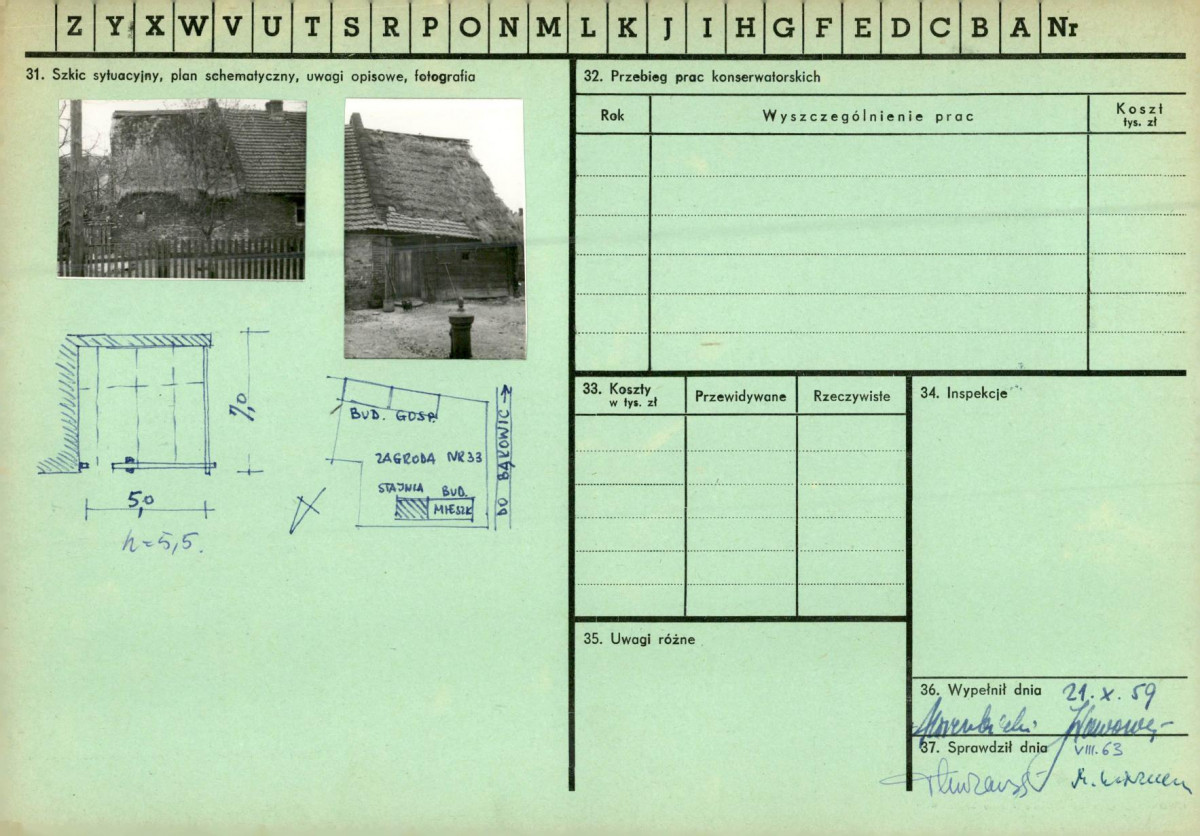 Z Y X W V U T S R P O N M L K J I H G F E D C B A Nr
31. Szkic sytuacyjny, plan schematyczny, uwagi opisowe, fotografia
7,0
5,0
h=5,5.
BUD. GOSP.
ZAGRODA NR 33
STAJNIA BUD.
MIESZK
DO BĄKOWIC
32. Przebieg prac konserwatorskich
Rok Wyszczególnienie prac Koszt
tys. zł
33. Koszty
w tys. zł
Przewidywane Rzeczywiste
34. Inspekcje
35. Uwagi różne
36. Wypełnił dnia 21.X.59
37. Sprawdził dnia VIII.63